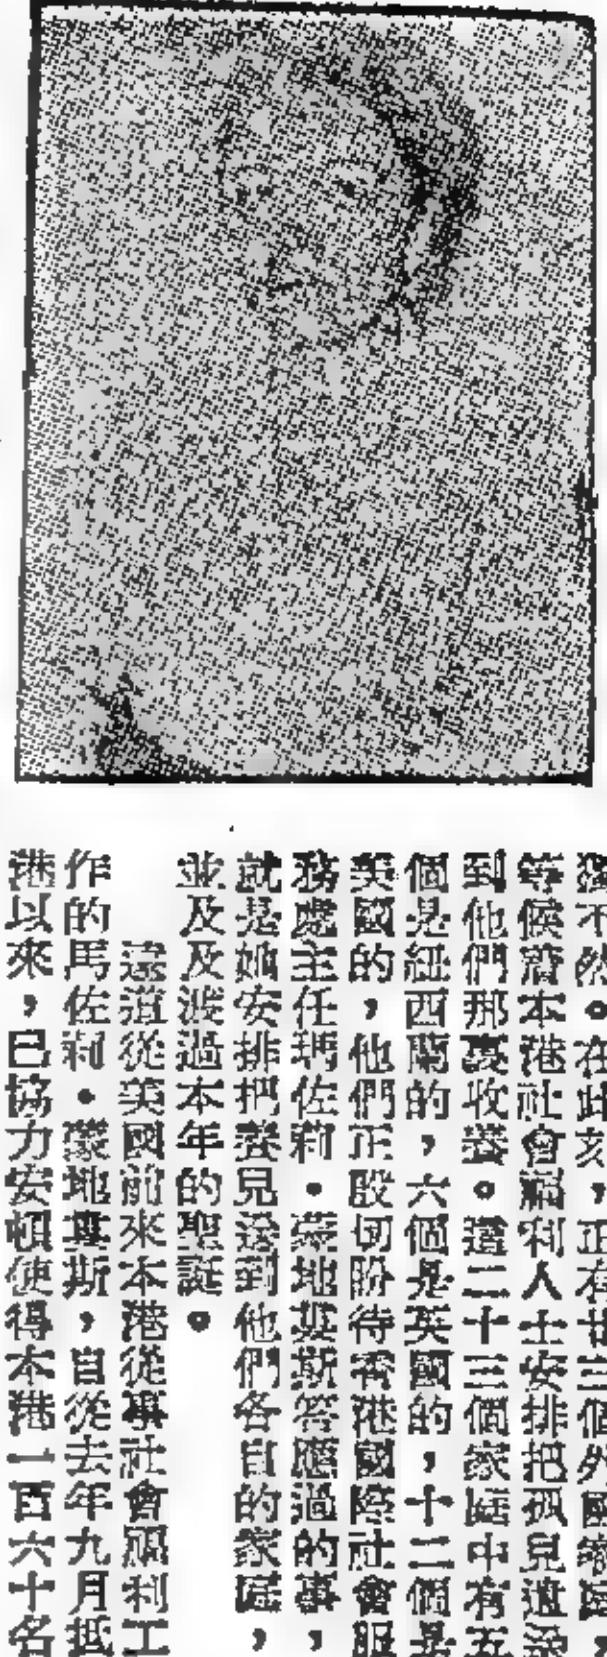 獨不然。在此刻，正有廿三個外國家庭，
等候着本港社會福利人士安排把孤兒遣送
到他們那裏收養。這二十三個家庭中有五
個是紐西蘭的，六個是英國的，十二個是
美國的，他們正殷切盼待香港國際社會服
務處主任瑪佐莉•蒙地斯答應過的事，
就是她安排把養兒送到他們各自的家庭，
並及及渡過本年的聖誕。
遠道從美國前來本港從事社會福利工
作的馬佐莉•蒙地斯，自從去年九月抵
港以來，已協力安頓使得本港一百六十名